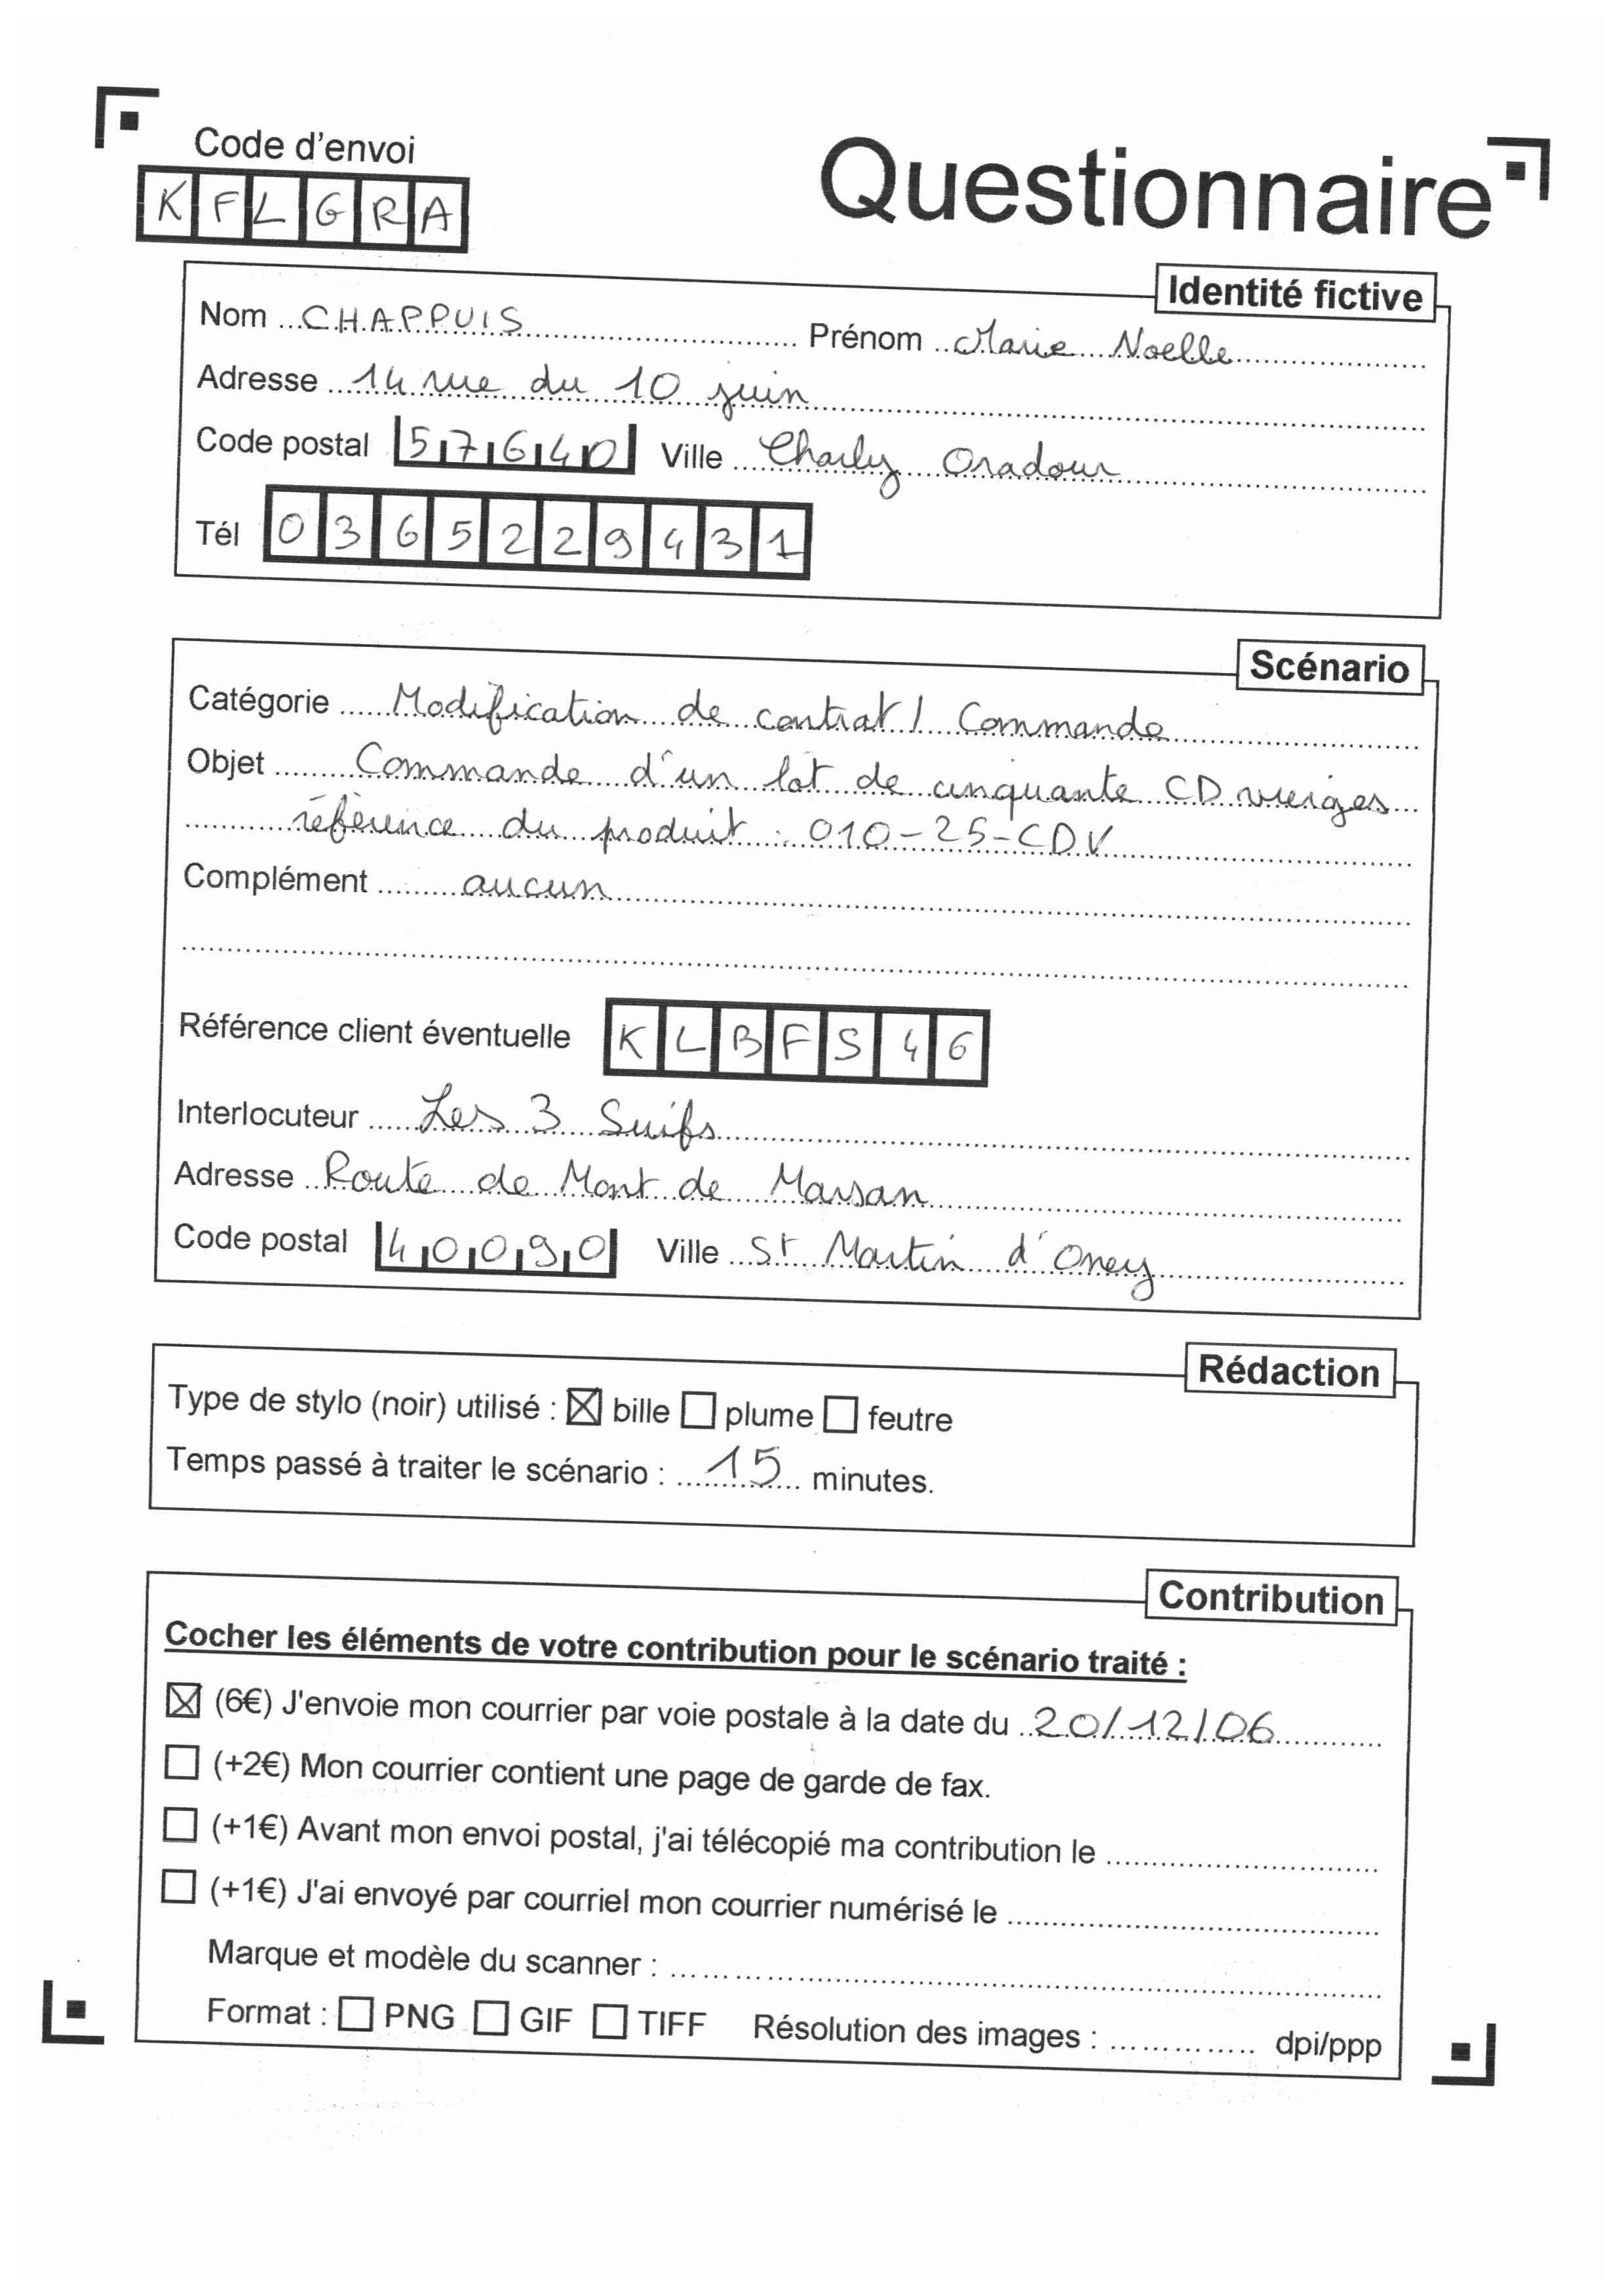 Code d'envoi
KFLGRA
Questionnaire
Identité fictive
Nom CHAPPUIS Prénom Marie Noelle
Adresse 14 rue du 10 juin
Code postal 57640 Ville Charly Oradour
Tél 0365229431
Scénario
Catégorie Modification de contrat / Commande
Objet Commande d'un lot de cinquante CD vierges
référence du produit : 010-25-CDV
Complément aucun
Référence client éventuelle KLBFS46
Interlocuteur Les 3 Suifs
Adresse Route de Mont de Marsan
Code postal 40090 Ville St Martin d'Oney
Rédaction
Type de stylo (noir) utilisé : ☒ bille ☐ plume ☐ feutre
Temps passé à traiter le scénario : 15 minutes.
Contribution
Cocher les éléments de votre contribution pour le scénario traité :
☒ (6€) J'envoie mon courrier par voie postale à la date du 20/12/06
☐ (+2€) Mon courrier contient une page de garde de fax.
☐ (+1€) Avant mon envoi postal, j'ai télécopié ma contribution le
☐ (+1€) J'ai envoyé par courriel mon courrier numérisé le
Marque et modèle du scanner :
Format : ☐ PNG ☐ GIF ☐ TIFF Résolution des images : dpi/ppp